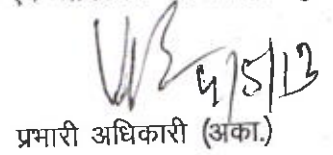 4/5/13
प्रभारी अधिकारी (अका.)